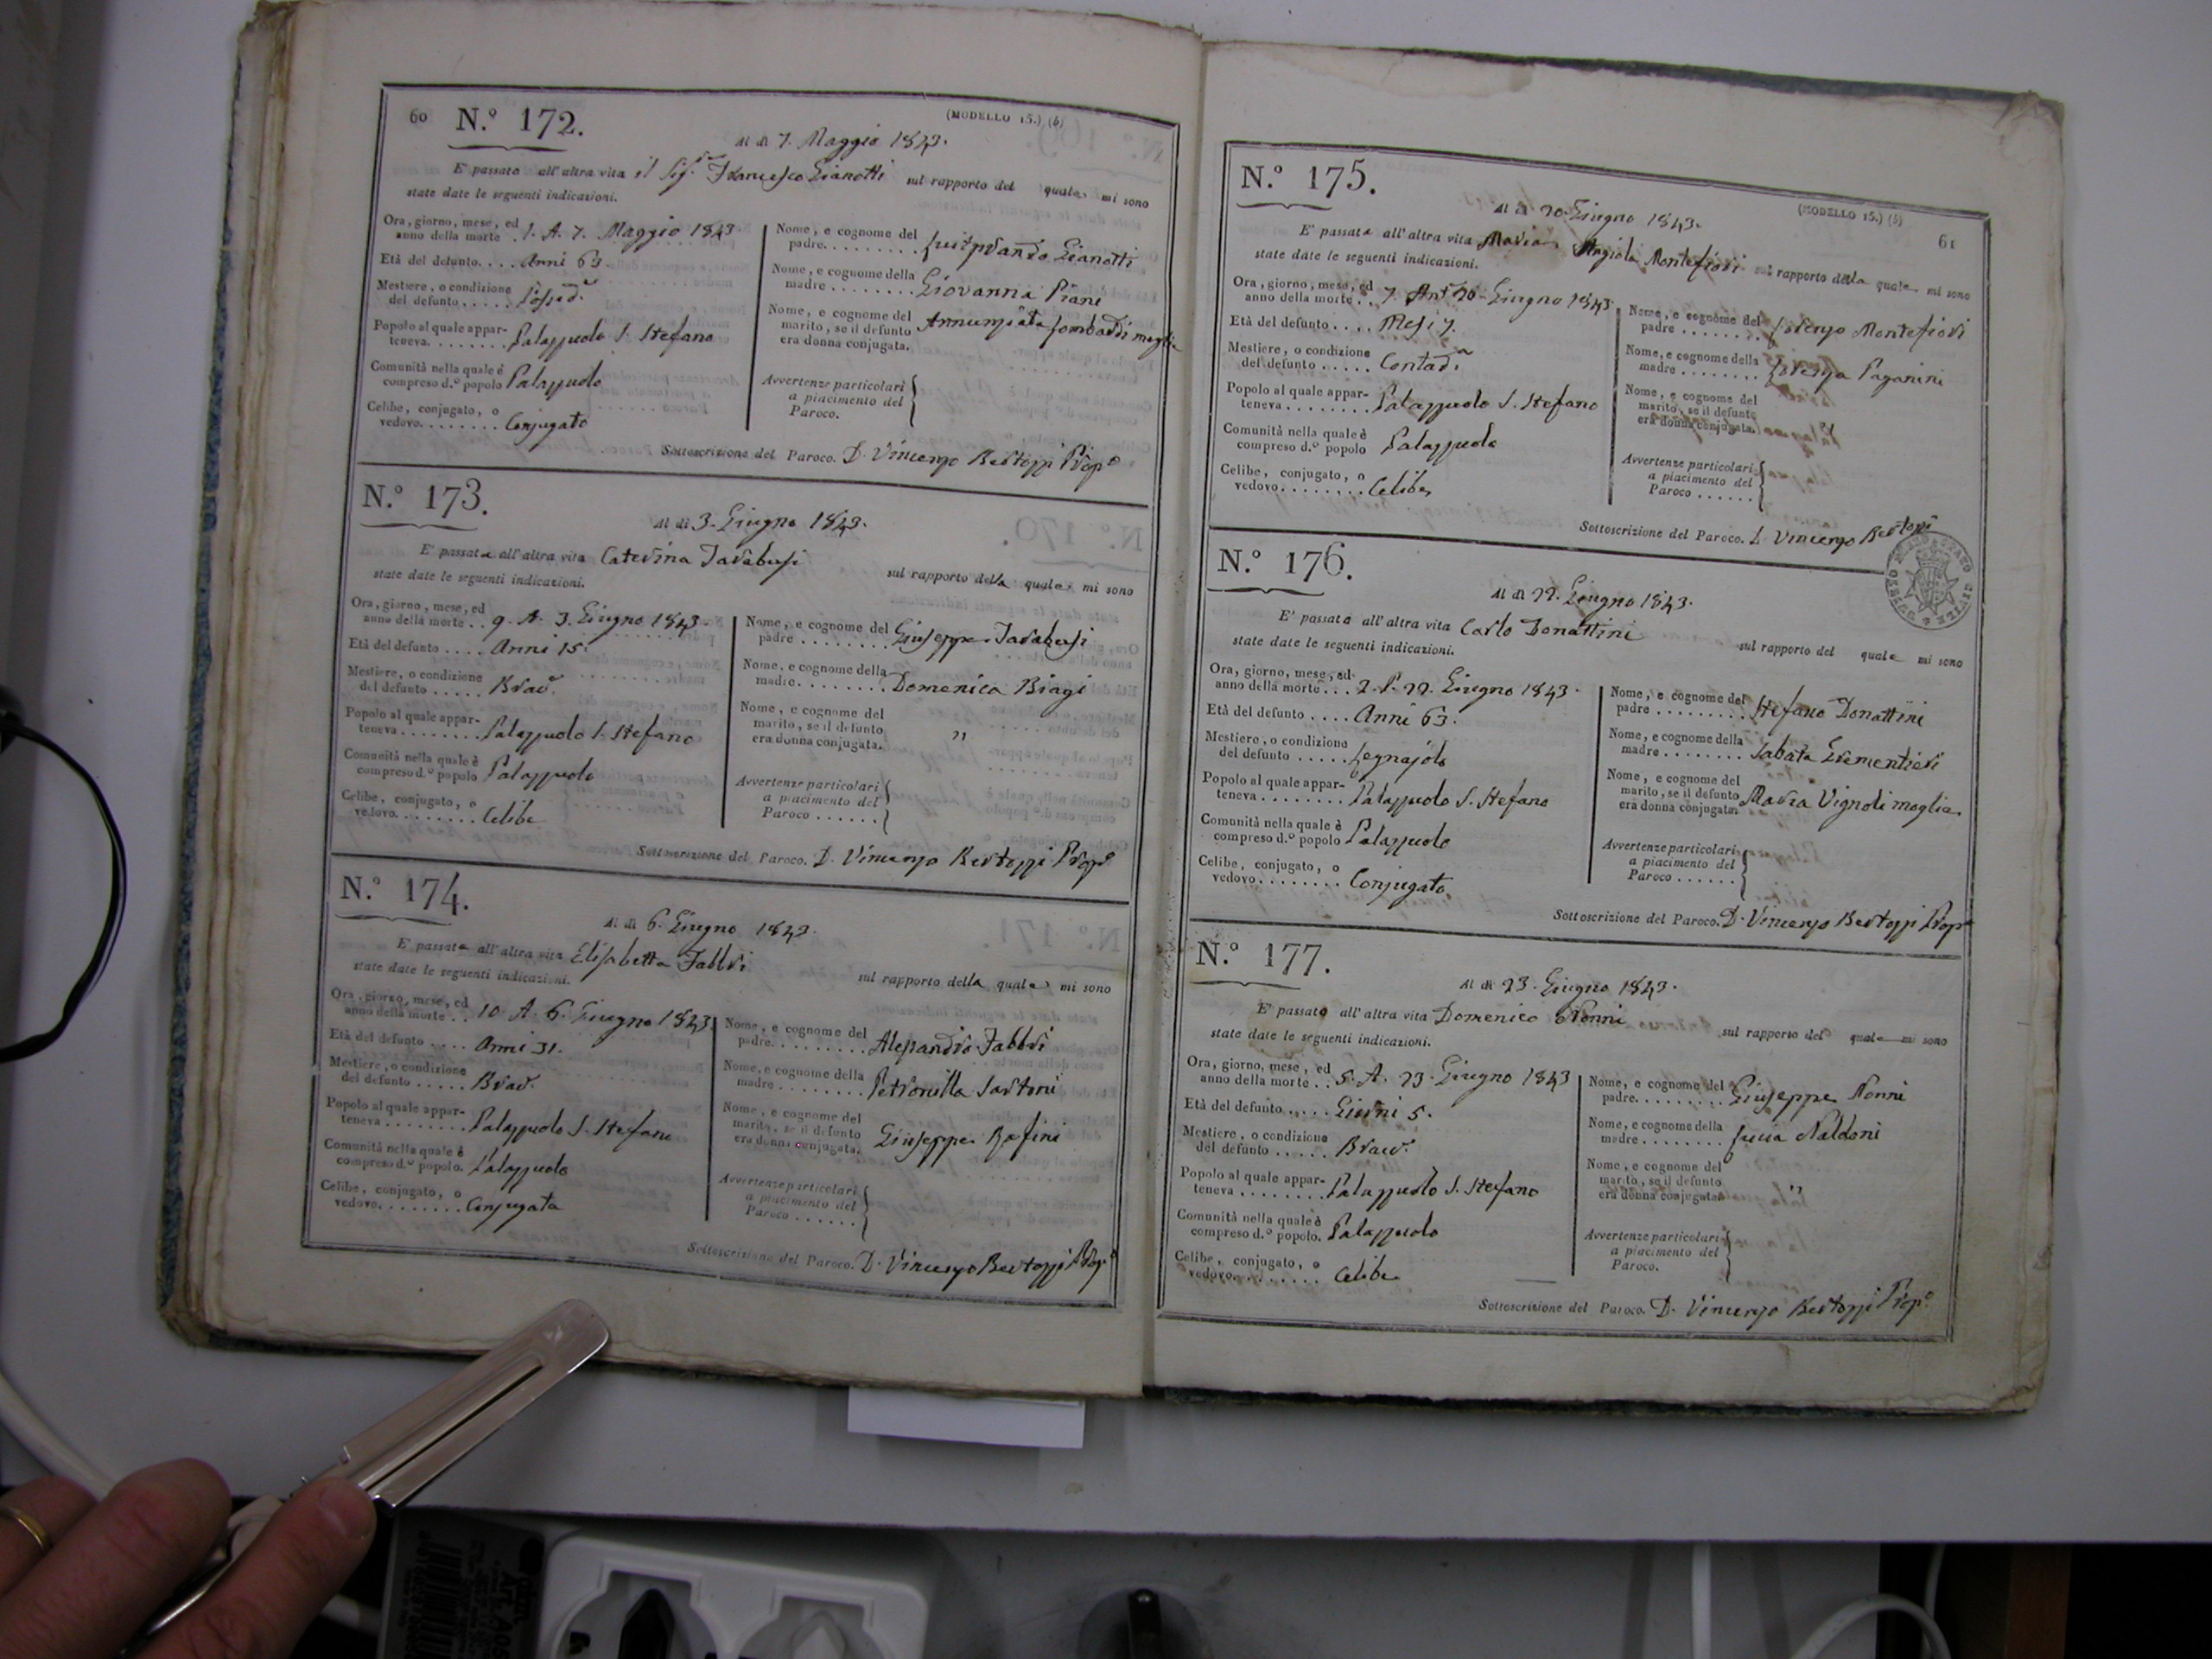 60
N.º 172.
(MODELLO 15.) (b)
Al dì 7. Maggio 1843.
E' passato all'altra vita il Sig.r Francesco Gianotti sul rapporto del quale mi sono
state date le seguenti indicazioni.
Ora, giorno, mese, ed
anno della morte . . 1. A. 7. Maggio 1843
Età del defunto. . . . Anni 63.
Mestiere, o condizione
del defunto . . . . . Possid.e
Popolo al quale appar-
teneva. . . . . . . . Palazzuolo S. Stefano
Comunità nella quale è
compreso d.º popolo Palazzuolo
Celibe, conjugato, o
vedovo. . . . . . . . Conjugato
Nome, e cognome del
padre. . . . . . . . Luitprando Gianotti
Nome, e cognome della
madre . . . . . . . . Giovanna Piani
Nome, e cognome del
marito, se il defunto
era donna conjugata. Annunziata Lombardi moglie
Avvertenze particolari
a piacimento del
Paroco.
Sottoscrizione del Paroco. D. Vincenzo Bertozzi Prop.º
N.º 173.
Al dì 3. Giugno 1843.
E' passata all'altra vita Caterina Tarabusi
sul rapporto della quale mi sono
state date le seguenti indicazioni.
Ora, giorno, mese, ed
anno della morte . . 9. A. 3. Giugno 1843.
Età del defunto . . . . Anni 15.
Mestiere, o condizione
del defunto . . . . . Brac.
Popolo al quale appar-
teneva . . . . . . . . Palazzuolo S. Stefano
Comunità nella quale è
compreso d.º popolo Palazzuolo
Celibe, conjugato, o
vedovo. . . . . . . . Celibe
Nome, e cognome del
padre . . . . . . . . Giuseppe Tarabusi
Nome, e cognome della
madre. . . . . . . . Domenica Biagi
Nome, e cognome del
marito, se il defunto
era donna conjugata. "
Avvertenze particolari
a piacimento del
Paroco . . . . . .
Sottoscrizione del Paroco. D. Vincenzo Bertozzi Prop.º
N.º 174.
Al dì 6. Giugno 1843.
E' passata all'altra vita Elisabetta Fabbri
sul rapporto della quale mi sono
state date le seguenti indicazioni.
Ora, giorno, mese, ed
anno della morte . . 10 A. 6. Giugno 1843
Età del defunto . . . . Anni 31.
Mestiere, o condizione
del defunto . . . . . Brac.
Popolo al quale appar-
teneva . . . . . . . . Palazzuolo S. Stefano
Comunità nella quale è
compreso d.º popolo. Palazzuolo
Celibe, conjugato, o
vedovo. . . . . . . . Conjugata
Nome, e cognome del
padre. . . . . . . . Alessandro Fabbri
Nome, e cognome della
madre . . . . . . . . Petronilla Sartoni
Nome, e cognome del
marito, se il defunto
era donna conjugata. Giuseppe Rofini
Avvertenze particolari
a piacimento del
Paroco . . . . . .
Sottoscrizione del Paroco. D. Vincenzo Bertozzi Prop.º
N.º 175.
(MODELLO 15.) (b)
61
Al dì 20. Giugno 1843.
E' passata all'altra vita Maria Angiola Montefiori sul rapporto della quale mi sono
state date le seguenti indicazioni.
Ora, giorno, mese, ed
anno della morte . . 7. Ant. 20 Giugno 1843.
Età del defunto . . . . Mesi 7.
Mestiere, o condizione
del defunto . . . . . Contad.a
Popolo al quale appar-
teneva . . . . . . . . Palazzuolo S. Stefano
Comunità nella quale è
compreso d.º popolo Palazzuolo
Celibe, conjugato, o
vedovo. . . . . . . . Celibe
Nome, e cognome del
padre . . . . . . . Lorenzo Montefiori
Nome, e cognome della
madre . . . . . . . . Lorenza Paganini
Nome, e cognome del
marito, se il defunto
era donna conjugata.
Avvertenze particolari
a piacimento del
Paroco . . . . . .
Sottoscrizione del Paroco. D. Vincenzo Bertozzi
N.º 176.
Al dì 22. Giugno 1843.
E' passato all'altra vita Carlo Donattini
sul rapporto del quale mi sono
state date le seguenti indicazioni.
Ora, giorno, mese, ed
anno della morte . . . 2. P. 22. Giugno 1843.
Età del defunto . . . . Anni 63.
Mestiere, o condizione
del defunto . . . . . Legnajolo
Popolo al quale appar-
teneva . . . . . . . . Palazzuolo S. Stefano
Comunità nella quale è
compreso d.º popolo Palazzuolo
Celibe, conjugato, o
vedovo. . . . . . . . Conjugato
Nome, e cognome del
padre . . . . . . . . Stefano Donattini
Nome, e cognome della
madre . . . . . . . . Sabata Grementieri
Nome, e cognome del
marito, se il defunto
era donna conjugata. Maria Vignoli moglie
Avvertenze particolari
a piacimento del
Paroco . . . . . .
Sottoscrizione del Paroco. D. Vincenzo Bertozzi Prop.º
N.º 177.
Al dì 23. Giugno 1843.
E' passato all'altra vita Domenico Nonni
sul rapporto del quale mi sono
state date le seguenti indicazioni.
Ora, giorno, mese, ed
anno della morte . . 5. A. 23. Giugno 1843
Età del defunto . . . . . Giorni 5.
Mestiere, o condizione
del defunto . . . . . Brac.
Popolo al quale appar-
teneva . . . . . . . . Palazzuolo S. Stefano
Comunità nella quale è
compreso d.º popolo. Palazzuolo
Celibe, conjugato, o
vedovo. . . . . . . . Celibe
Nome, e cognome del
padre. . . . . . . . Giuseppe Nonni
Nome, e cognome della
madre . . . . . . . . Lucia Naldoni
Nome, e cognome del
marito, se il defunto
era donna conjugata. "
Avvertenze particolari
a piacimento del
Paroco.
Sottoscrizione del Paroco. D. Vincenzo Bertozzi Prop.º